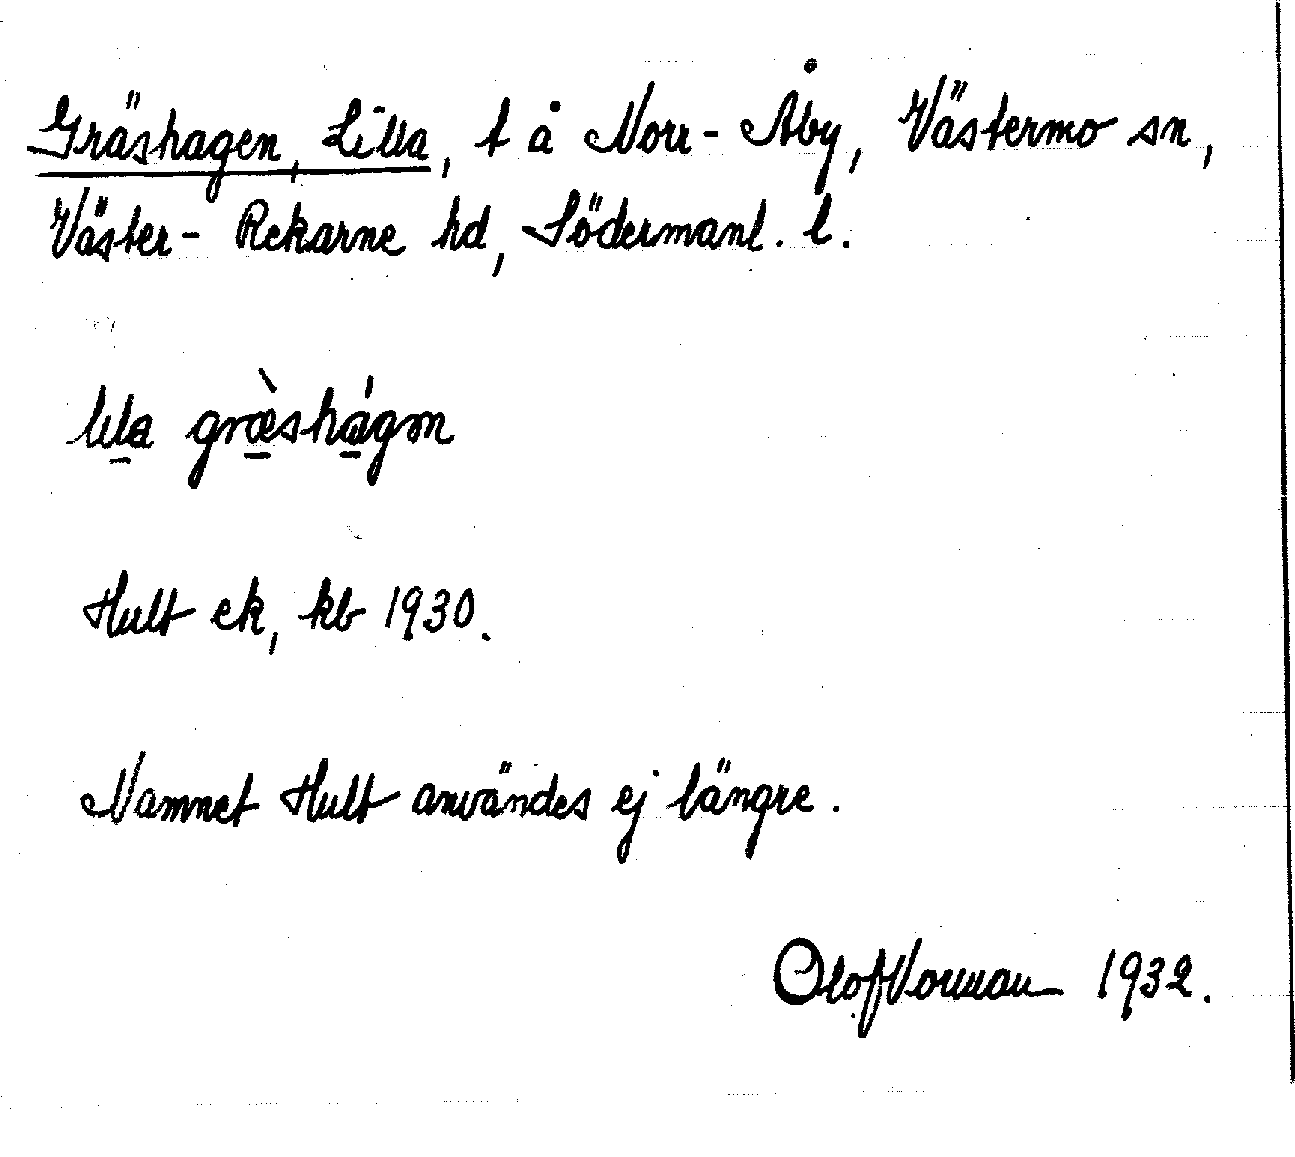 Gräshagen, Lilla, t å Norr-Åby, Västermo sn,
Väster-Rekarne hd, Södermanl. l.
lila græ̀shágən
Hult ek, kb 1930.
Namnet Hult användes ej längre.
Olof 1932.